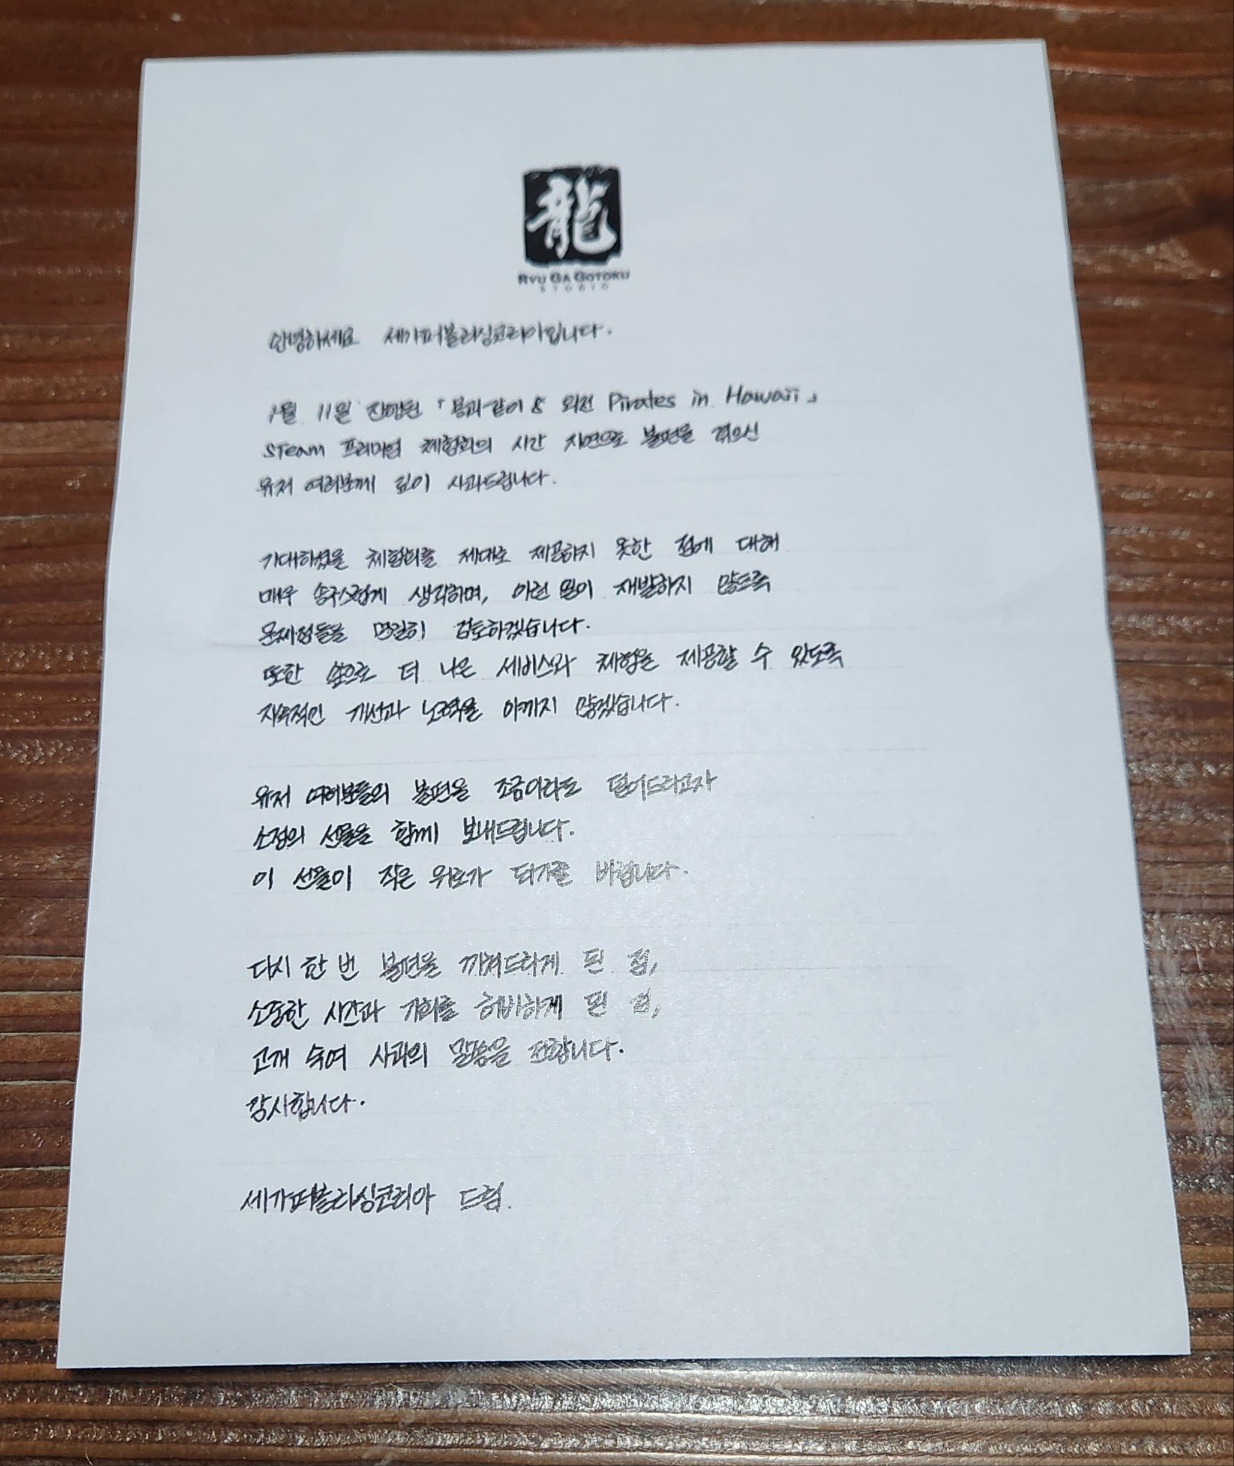 龍
RYU GA GOTOKU
STUDIO
안녕하세요 세가퍼블리싱코리아입니다.
1월 11일 진행된 「용과같이8 외전 Pirates in Hawaii」
STeam 프리미엄 체험회의 시간 지연으로 불편을 겪으신
유저 여러분께 깊이 사과드립니다.
기대하셨을 체험회를 제대로 제공하지 못한 점에 대해
매우 송구스럽게 생각하며, 이런 일이 재발하지 않도록
문제점들을 면밀히 검토하겠습니다.
또한 앞으로 더 나은 서비스와 체험을 제공할 수 있도록
지속적인 개선과 노력을 아끼지 않겠습니다.
유저 여러분들의 불편을 조금이라도 덜어드리고자
소정의 선물을 함께 보내드립니다.
이 선물이 작은 위로가 되기를 바랍니다.
다시 한 번 불편을 끼쳐드리게 된 점,
소중한 시간과 기회를 허비하게 된 점,
고개 숙여 사과의 말씀을 전합니다.
감사합니다.
세가퍼블리싱코리아 드림.